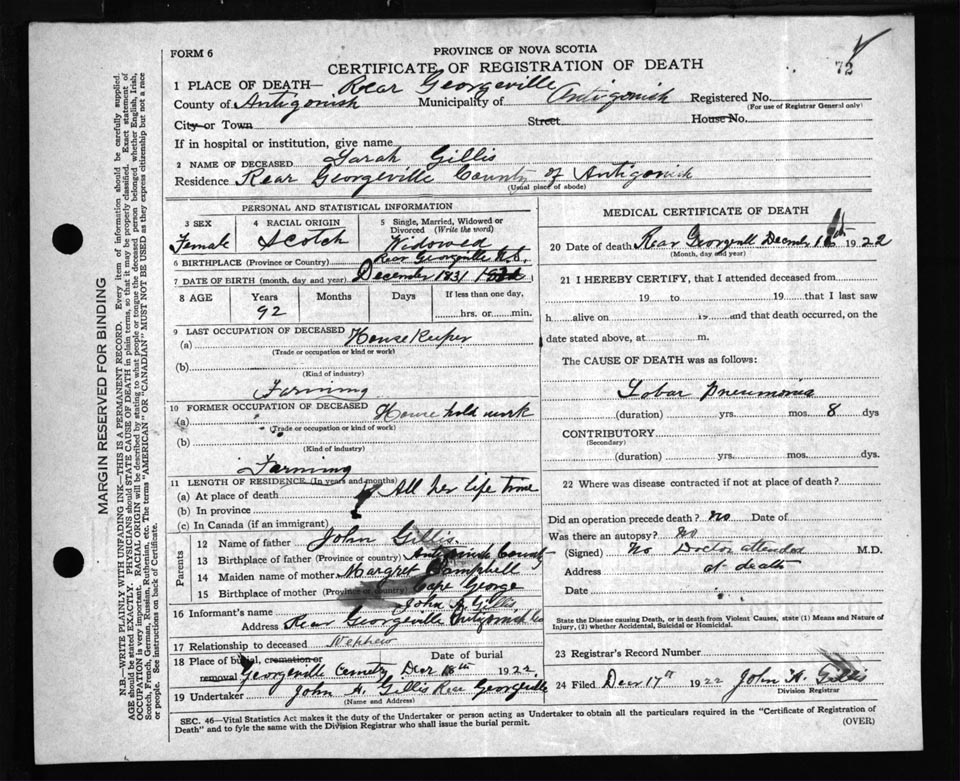 FORM 6
PROVINCE OF NOVA SCOTIA
CERTIFICATE OF REGISTRATION OF DEATH
72
1 PLACE OF DEATH— Rear Georgeville
County of Antigonish Municipality of Antigonish Registered No.
(For use of Registrar General only)
City or Town Street House No.
If in hospital or institution, give name
2 NAME OF DECEASED Sarah Gillis
Residence Rear Georgeville County of Antigonish
(Usual place of abode)
PERSONAL AND STATISTICAL INFORMATION
3 SEX Female
4 RACIAL ORIGIN Scotch
5 Single, Married, Widowed or Divorced (Write the word) Widowed
6 BIRTHPLACE (Province or Country) Rear Georgeville N.S.
7 DATE OF BIRTH (month, day and year) December 1831
8 AGE Years 92 Months Days If less than one day, hrs. or min.
9 LAST OCCUPATION OF DECEASED
(a) House Keeper
(Trade or occupation or kind or work)
(b)
(Kind of industry)
Farming
10 FORMER OCCUPATION OF DECEASED
(a) House hold work
(Trade or occupation or kind of work)
(b)
(Kind of industry)
Farming
11 LENGTH OF RESIDENCE (In years and months)
(a) At place of death All her life time
(b) In province
(c) In Canada (if an immigrant)
Parents
12 Name of father John Gillis
13 Birthplace of father (Province or country) Antigonish County
14 Maiden name of mother Margret Campbell
15 Birthplace of mother (Province or country) Cape George
16 Informant's name John A. Gillis
Address Rear Georgeville Antigonish Co
17 Relationship to deceased Nephew
18 Place of burial, cremation or removal Georgeville Cemetry Date of burial Decr 18th 1922
19 Undertaker John A. Gillis Rear Georgeville
(Name and Address)
MEDICAL CERTIFICATE OF DEATH
20 Date of death Rear Georgevill Decembr 16th 1922
(Month, day and year)
21 I HEREBY CERTIFY, that I attended deceased from
19 to 19 that I last saw
h alive on 19 and that death occurred, on
date stated above, at m.
The CAUSE OF DEATH was as follows:
Lobar Pneumonia
(duration) yrs. mos. 8 dys
CONTRIBUTORY
(Secondary)
(duration) yrs. mos. dys.
22 Where was disease contracted if not at place of death?
Did an operation precede death? No Date of
Was there an autopsy? No
(Signed) No Doctor attended M.D.
Address at death
Date
State the Disease causing Death, or in death from Violent Causes, state (1) Means and Nature of Injury, (2) whether Accidental, Suicidal or Homicidal.
23 Registrar's Record Number
24 Filed Decr 17th 1922 John A. Gillis
Division Registrar
SEC. 46—Vital Statistics Act makes it the duty of the Undertaker or person acting as Undertaker to obtain all the particulars required in the "Certificate of Registration of
Death" and to fyle the same with the Division Registrar who shall issue the burial permit.
(OVER)
MARGIN RESERVED FOR BINDING
N.B.—WRITE PLAINLY WITH UNFADING INK—THIS IS A PERMANENT RECORD. Every item of information should be carefully supplied.
AGE should be stated EXACTLY. PHYSICIANS should STATE CAUSE OF DEATH in plain terms, so that it may be properly classified. Exact statement of
OCCUPATION is very important. RACIAL ORIGIN will be described by stating to what people or tongue the deceased person belonged whether English, Irish,
Scotch, French, German, Russian, Ruthenian, etc. The terms "AMERICAN" OR "CANADIAN" MUST NOT BE USED as they express citizenship but not a race
or people. See instructions on back of Certificate.